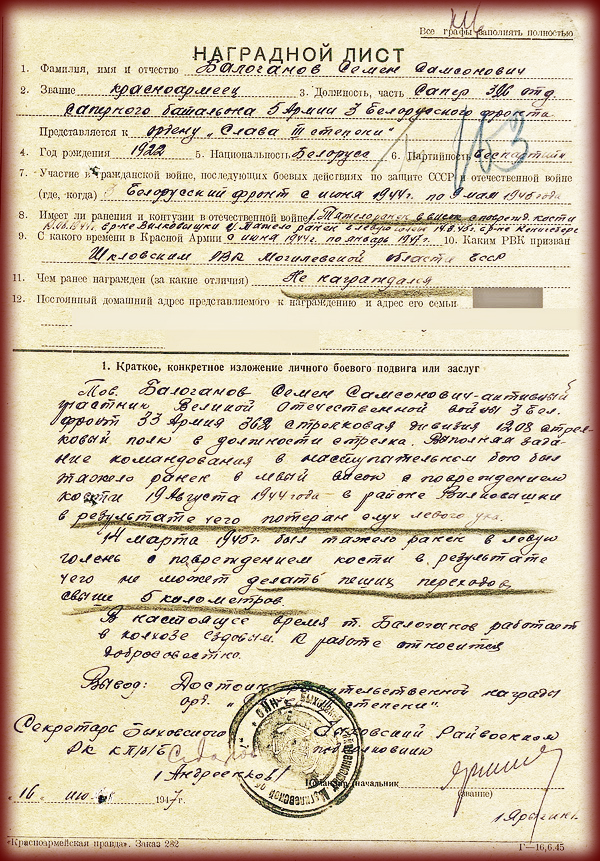 Все графы заполнять полностью
НАГРАДНОЙ ЛИСТ
1. Фамилия, имя и отчество Балоганов Семен Самсонович
2. Звание красноармеец 3. Должность, часть Сапер 396 отд.
саперного батальона 5 Армии 3 Белорусского фронта
Представляется к ордену „Слава III степени"
153
4. Год рождения 1922 5. Национальность Белорус 6. Партийность беспартийн
7. Участие в гражданской войне, последующих боевых действиях по защите СССР и отечественной войне
(где, когда) 3 Белорусский фронт с июня 1944г. по 9 мая 1945 года
8. Имеет ли ранения и контузии в отечественной войне 1. Тяжело ранен в висок с поврежд. кости
р-не Вилковишки 2/ Тяжело ранен в левую голень 14.3.45 г. р-не Кенигсберг
9. С какого времени в Красной Армии с июня 1944г. по январь 1947г. 10. Каким РВК призван
Шкловским РВК Могилевской области БССР
11. Чем ранее награжден (за какие отличия) Не награждался
12. Постоянный домашний адрес представляемого к награждению и адрес его семьи
1. Краткое, конкретное изложение личного боевого подвига или заслуг
Тов. Балоганов Семен Самсонович-активный
участник Великой Отечественной войны 3 Бел.
фронт 33 Армия 362 стрелковая дивизия 1208 стрел-
ковый полк в должности стрелка. Выполняя зада-
ние командования в наступательном бою был
тяжело ранен в левый висок с повреждением
кости 19 Августа 1944 года в районе Вилковашки
в результате чего потерян слух левого уха.
14 марта 1945г. был тяжело ранен в левую
голень с повреждением кости в результате
чего не может делать пеших переходов,
свыше 5 километров.
В настоящее время т. Балоганов работает
в колхозе ездовым. К работе относится
добросовестно.
Вывод: Достоин правительственной награды
орд. „ степени".
Секретарь Быховского Быховский Райвоенком
РК КП/б/Б подполковник
/Андреенков/
Командир (начальник)
(звание)
16 1947г.
«Красноармейская правда». Заказ 282 Г—16,6.45